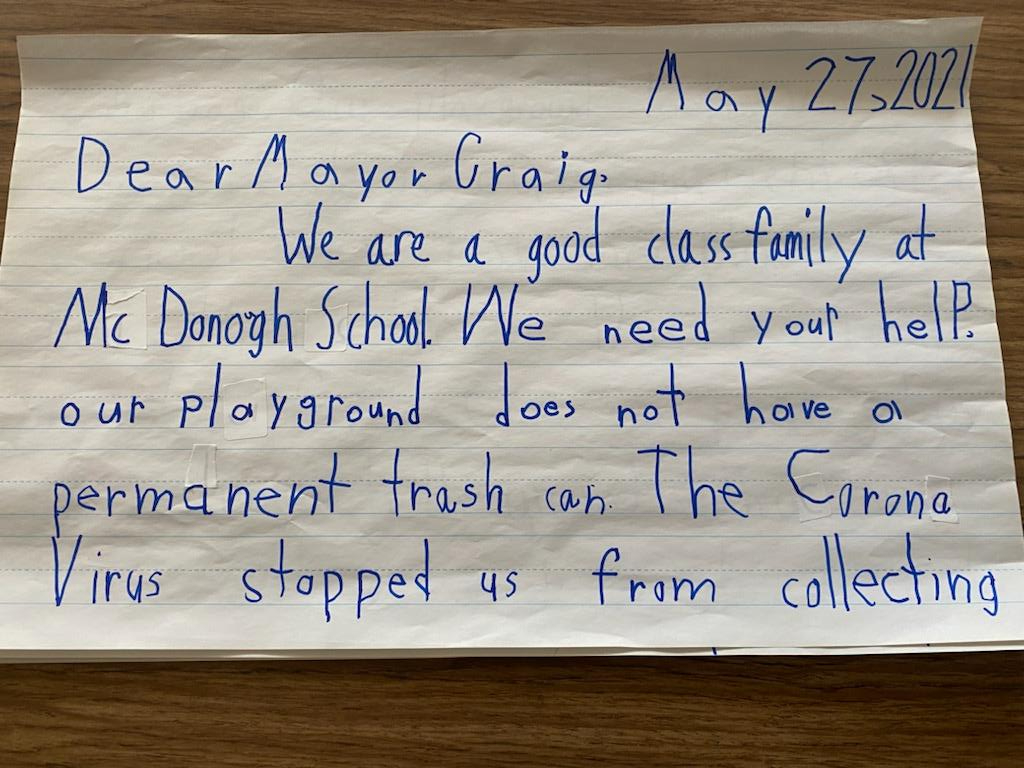 May 27, 2021
Dear Mayor Craig.
We are a good class family at
Mc Donogh School. We need your help.
our playground does not have a
permanent trash can. The Corona
Virus stopped us from collecting